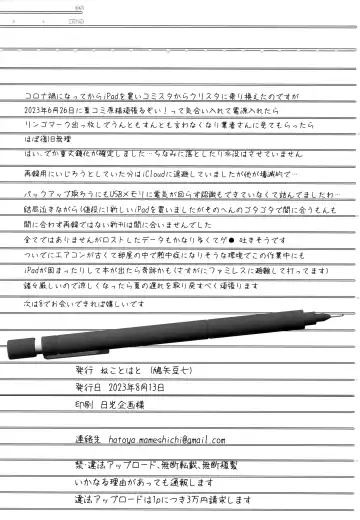 コロナ禍になってからiPadを買いコミスタからクリスタに乗り換えたのですが
2023年6月26日に夏コミ原稿頑るぞい！って気合い入れて電源入れたら
リンゴマーク出っ放しでうんともすんとも言わなくなり業者さんに見てもらったら
ほぼ復旧無理
はい、でか重文鎮化が確定しました…ちなみに落としたり水没はさせていません
再録用にいじろうとしていた分はiCloudに退避していましたが他が壊滅的で…
バックアップ取ろうにもUSBメモリに電気が回らず認識もできていなくて詰んでましたわ…
結局泣きながら(値段に)新しいiPadを買いましたがそのへんのゴタゴタで間に合うもんも
間に合わず再録ではない新刊は間に合いませんでした
全てではありませんがロストしたデータもかなり多くてゲ●吐きそうです
ついでにエアコンが古くて部屋の中で熱中症になりそうな環境でこの作業中にも
iPadが固まったりして本が出たら奇跡かも(さすがにファミレスに避難して打ってます)
諸々厳しいので涼しくなったら夏の遅れを取り戻すべく頑張ります
次は8でお会いできれば嬉しいです
発行 ねことはと (鳩矢豆七)
発行日 2023年8月13日
印刷 日光企画様
連絡先 hatoya.mameshichi@gmail.com
禁・違法アップロード、無断転載、無断複製
いかなる理由があっても通報します
違法アップロードは1pにつき3万円請求します